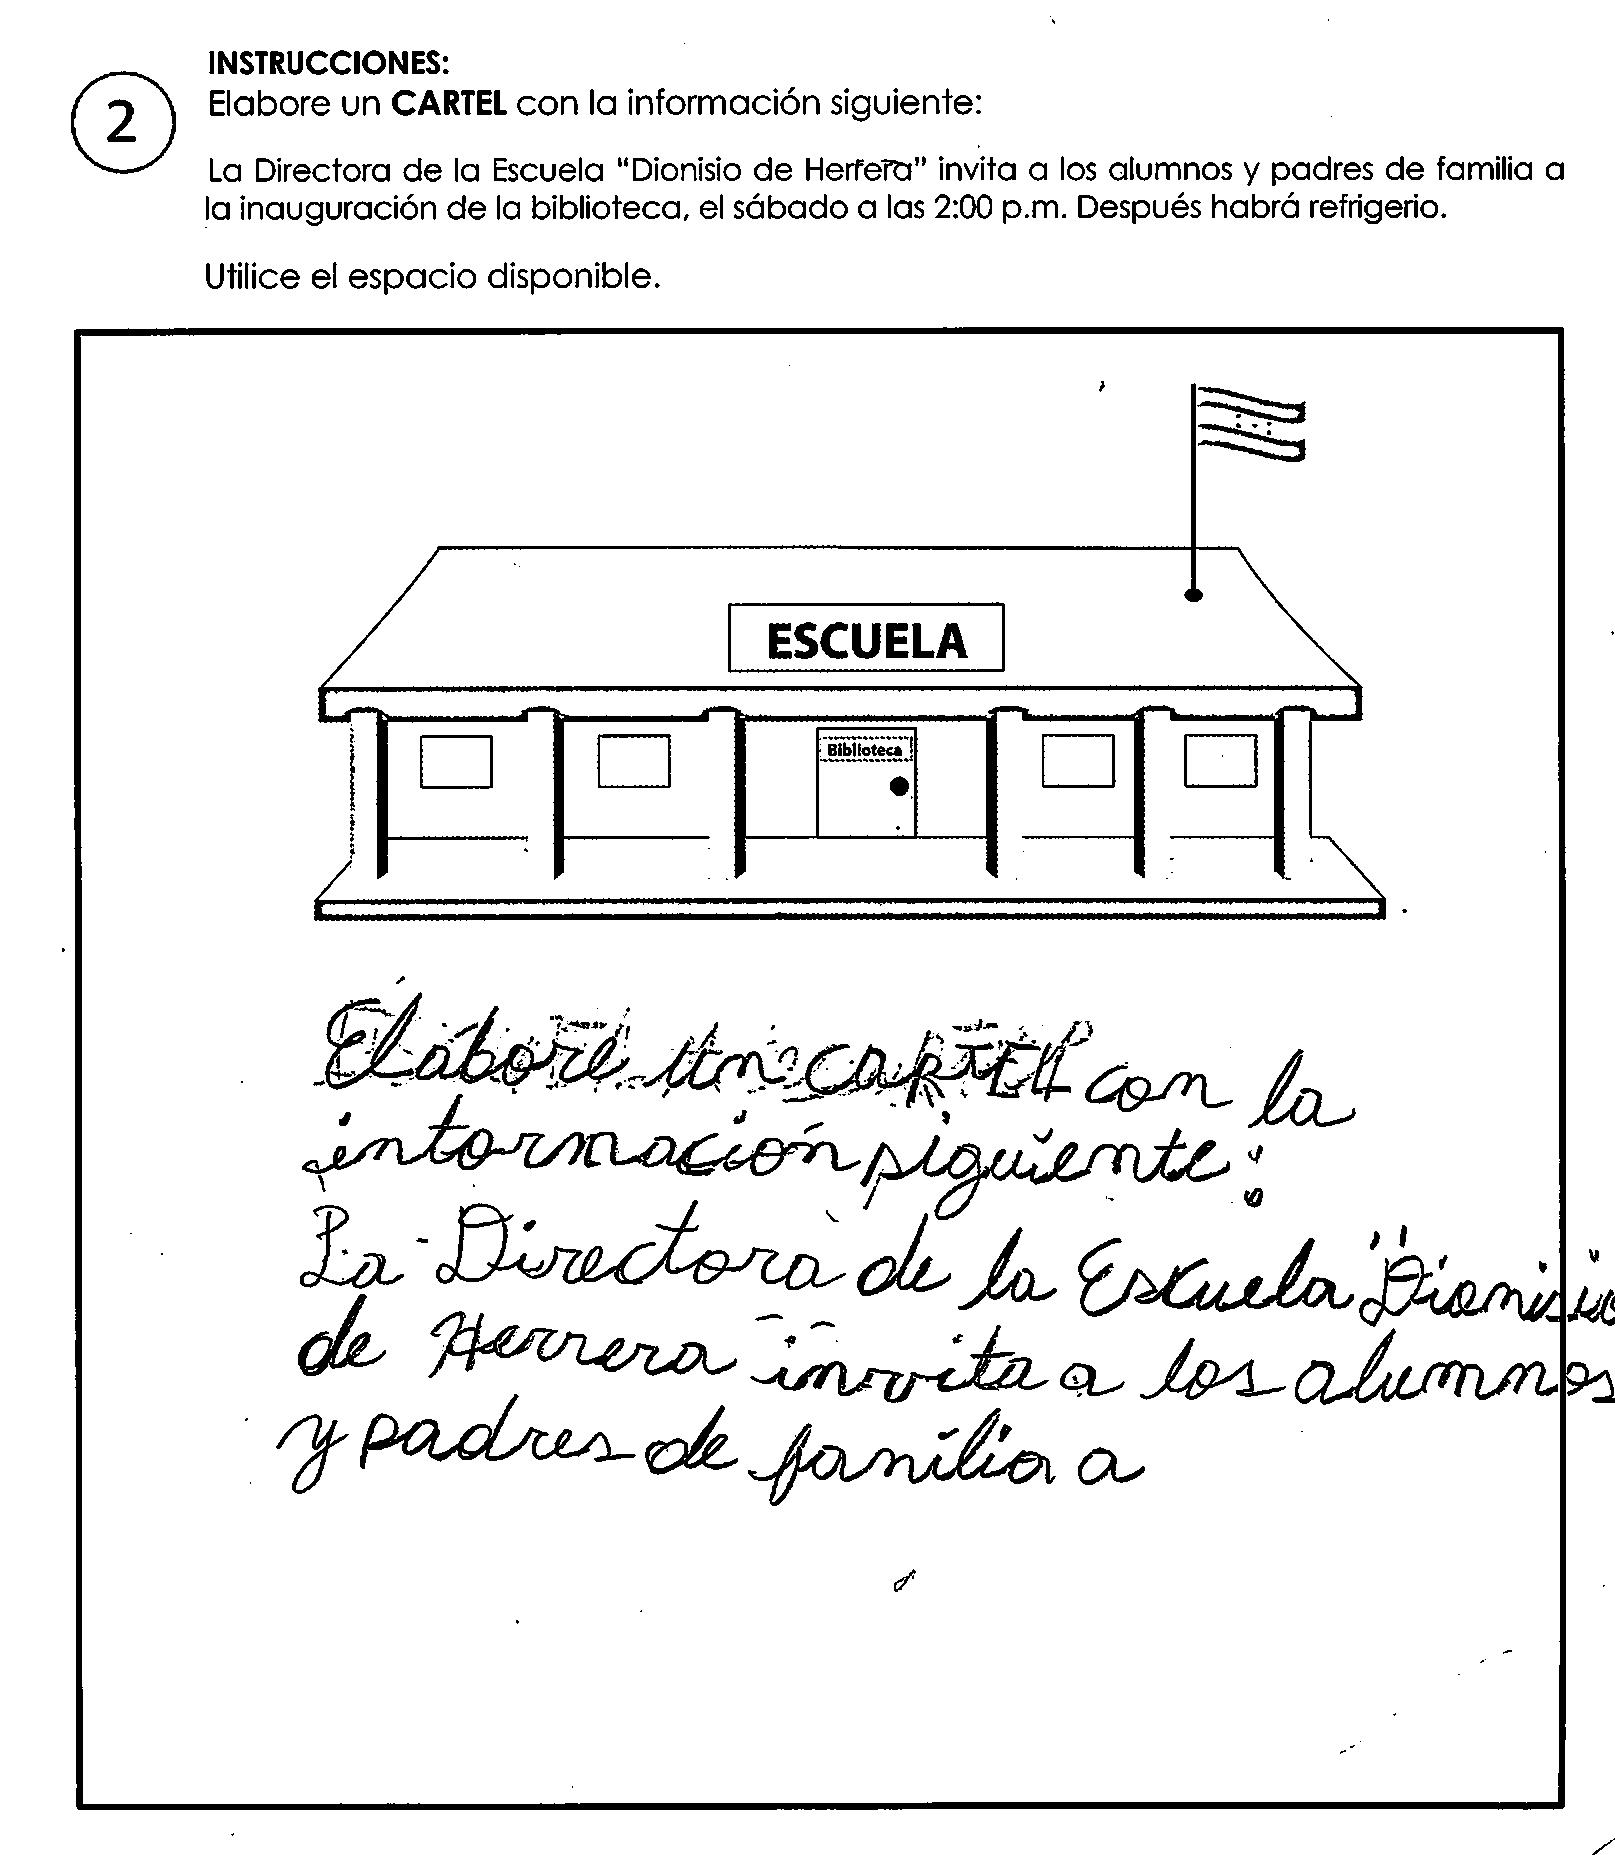 INSTRUCCIONES:
2
Elabore un CARTEL con la información siguiente:
La Directora de la Escuela "Dionisio de Herrera" invita a los alumnos y padres de familia a
la inauguración de la biblioteca, el sábado a las 2:00 p.m. Después habrá refrigerio.
Utilice el espacio disponible.
ESCUELA
Biblioteca
Elabore un CARTEL con la
intormación siguiente:
La Directora de la Escuela "Dionisio
de Herrera invita a los alumnos
y padres de familia a